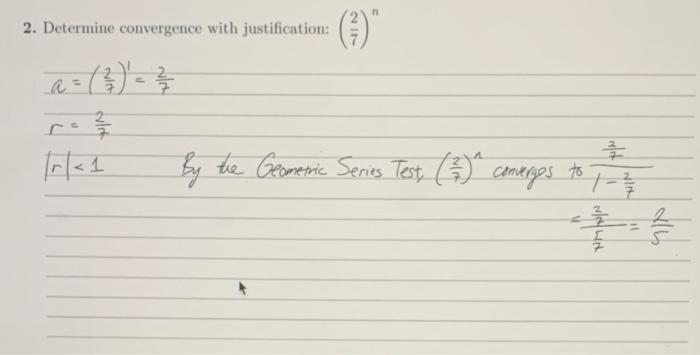 2. Determine convergence with justification: (2/7)^n
a = (2/7)^1 = 2/7
r = 2/7
|r| < 1 By the Geometric Series Test, (2/7)^n converges to (2/7)/(1 - 2/7)
= (2/7)/(5/7) = 2/5